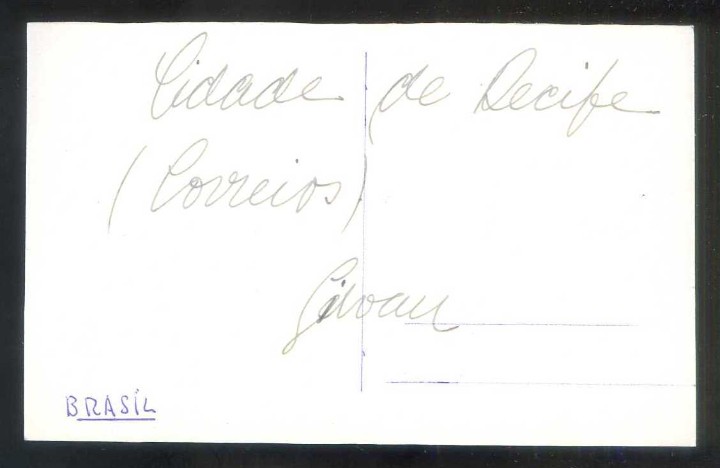 Cidade de Recife
(Correios)
Gilvan
BRASIL